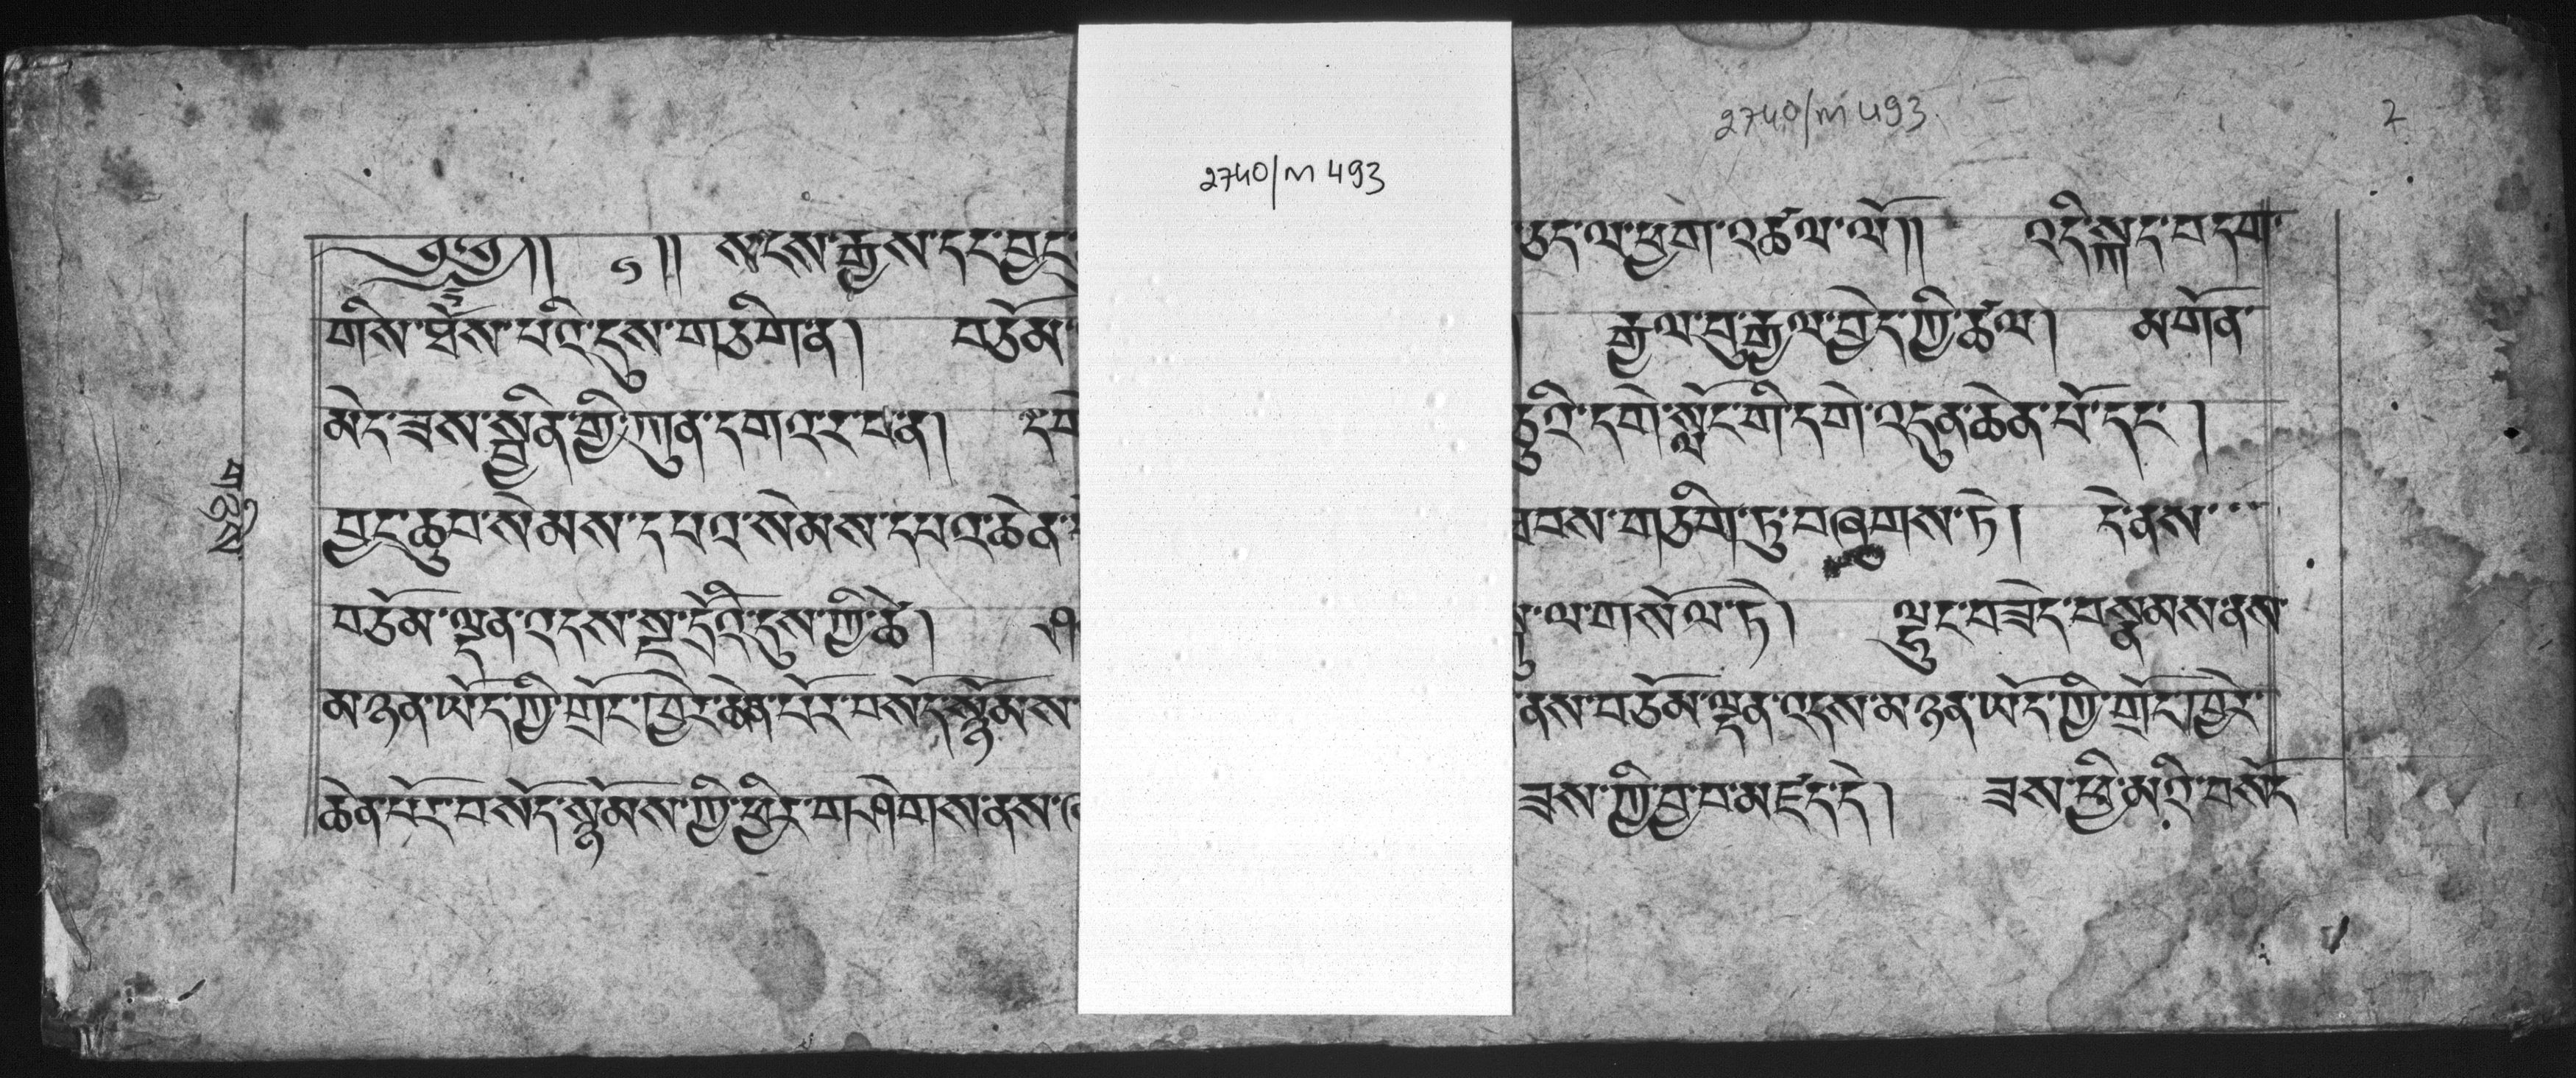 2740/m 493
2740/m 493
2
༄༅།། ༡།། སངས་རྒྱས་དང་བྱང་ ལ་ཕྱག་འཚལ་ལོ།། འདི་སྐད་བདག་
གིས་ཐོས་པའི་དུས་གཅིག་ན། བཅོམ་ རྒྱལ་བུ་རྒྱལ་བྱེད་ཀྱི་ཚལ། མགོན་
མེད་ཟས་སྦྱིན་གྱི་ཀུན་དགའ་ར་བ་ན། དགེ་སློང་གི་དགེ་འདུན་ཆེན་པོ་དང་།
བྱང་ཆུབ་སེམས་དཔའ་སེམས་དཔའ་ཆེན་ གཅིག་ཏུ་བཞུགས་ཏེ། དེ་ནས་
བཅོམ་ལྡན་འདས་སྔ་དྲོའི་དུས་ཀྱི་ཚེ། ལ་གསོལ་ཏེ། ལྷུང་བཟེད་བསྣམས་ནས
མཉན་ཡོད་ཀྱི་གྲོང་ཁྱེར་ཆེན་པོར་བསོད་སྙོམས་ ནས་བཅོམ་ལྡན་འདས་མཉན་ཡོད་ཀྱི་གྲོང་ཁྱེར་
ཆེན་པོར་བསོད་སྙོམས་ཀྱི་ཕྱིར་གཤེགས་ནས་ ཟས་ཀྱི་བྱ་བ་མཛད་དེ། ཟས་ཕྱི་མའི་བསོད